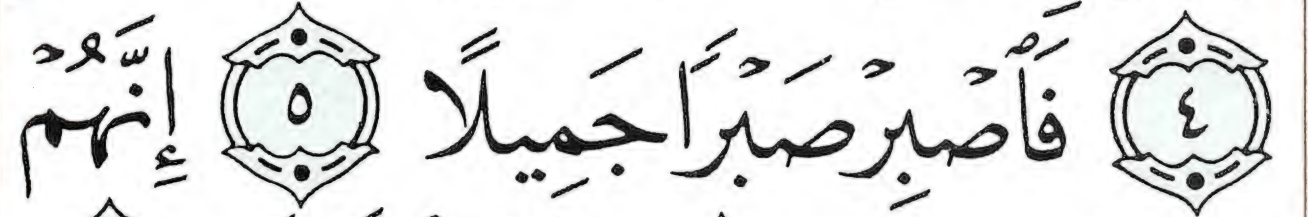 ٤ فَٱصۡبِرۡ صَبۡرٗا جَمِيلًا ٥ إِنَّهُمۡ